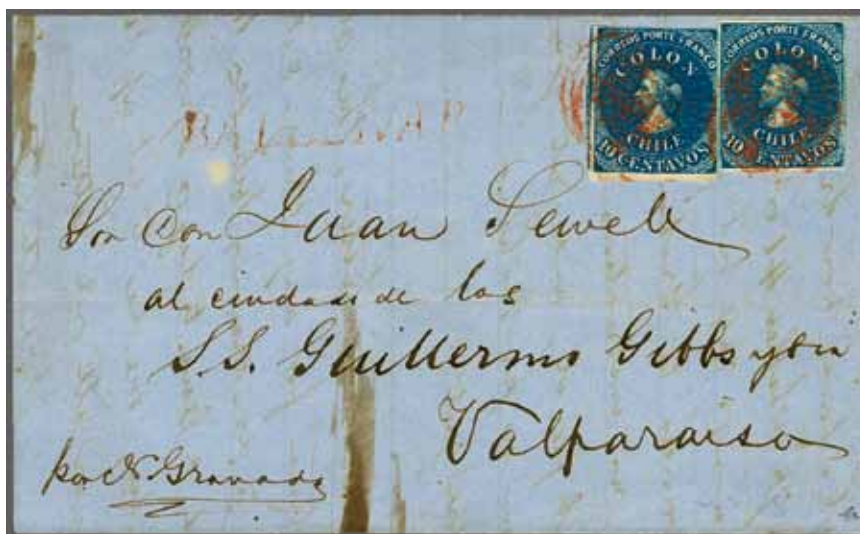 CORREOS PORTE FRANCO
COLON
CHILE
10 CENTAVOS
CORREOS PORTE FRANCO
COLON
CHILE
10 CENTAVOS
Sor Don Juan Sewell
al cuidado de los
S.S. Guillermo Gibbs y Cia
Valparaiso
por